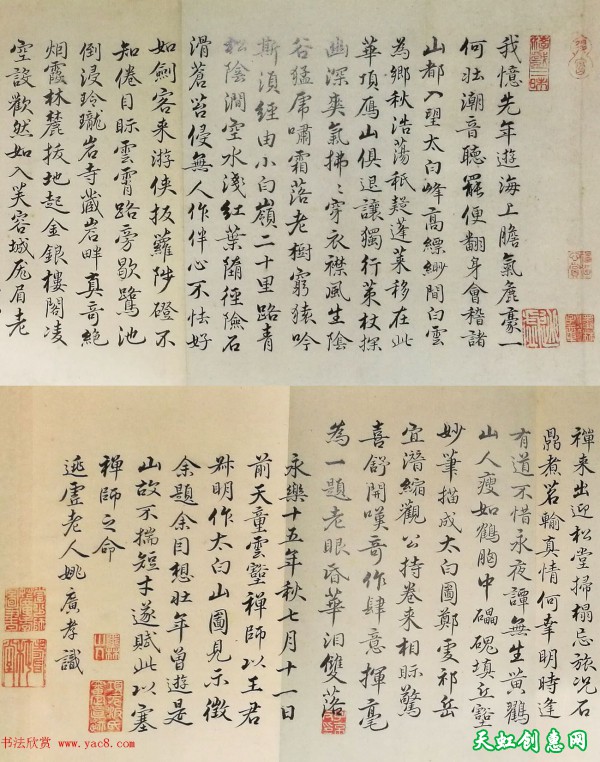 我憶先年遊海上膽氣麄豪一
何壯潮音聽罷便翻身會稽諸
山都入望太白峰高縹緲間白雲
為鄉秋浩蕩秖疑蓬萊移在此
華頂鴈山俱退讓獨行策杖探
幽深爽氣拂〻穿衣襟風生陰
谷猛虎嘯霜落老樹窮猿吟
斯須經由小白嶺二十里路青
松陰澗空水淺紅葉隨徑險石
滑蒼苔侵無人作伴心不怯好
如劍客来游俠扳蘿陟磴不
知倦目眎雲霄路旁歇鷺池
倒浸玲瓏岩寺藏岩畔真奇絶
烟霞林麓拔地起金銀樓閣凌
空設歡然如入芙容城厖眉老
禪来出迎松堂掃榻忘旅况石
鼎煮茗輸真情何幸明時逢
有道不惜永夜譚無生黄鸐
山人瘦如鶴胸中礧磈填丘壑
妙筆描成太白圖鄭虔祁岳
宜潛縮觀公持卷来相眎驚
喜舒開嘆奇作肆意揮毫
為一題老眼昏華泪雙落
永樂十五年秋七月十一日
前天童雲壑禪師以王君
叔明作太白山圖見示徵
余題余目想壯年曾遊是
山故不揣短才遂賦此以塞
禪師之命
逃虛老人姚廣孝識
书法欣赏 www.yac8.com
天虹创惠网